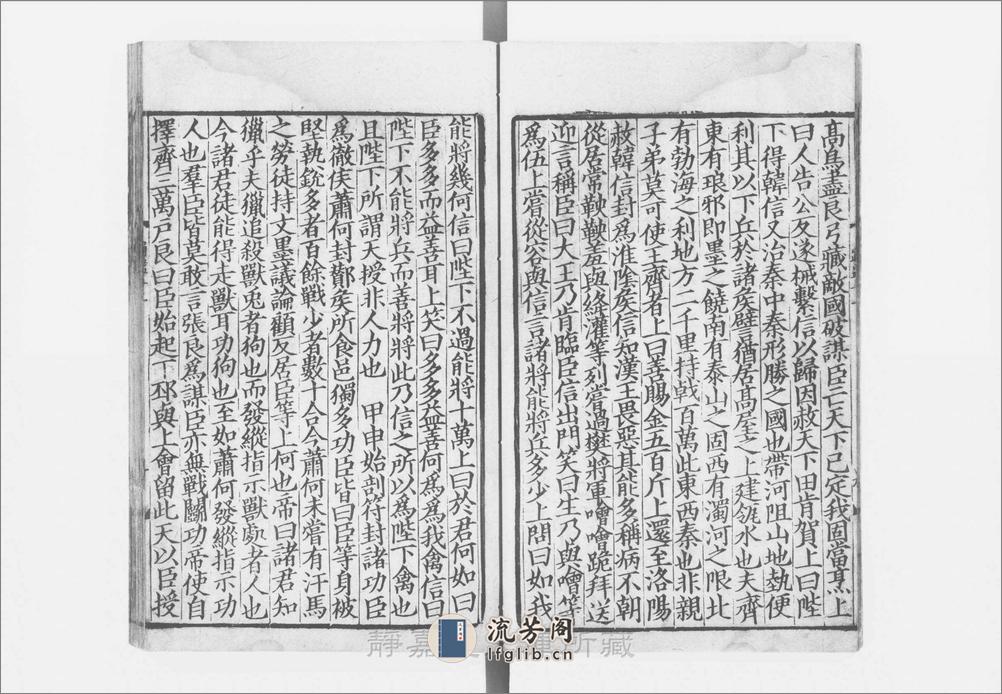 高鳥盡良弓藏敵國破謀臣亡天下已定我固當烹上
曰人告公反遂械繫信以歸因赦天下田肯賀上曰陛
下得韓信又治秦中秦形勝之國也帶河阻山地埶便
利其以下兵於諸侯譬猶居高屋之上建瓴水也夫齊
東有琅邪即墨之饒南有泰山之固西有濁河之限北
有勃海之利地方二千里持戟百萬此東西秦也非親
子弟莫可使王齊者上曰善賜金五百斤上還至洛陽
赦韓信封為淮陰侯信知漢王畏惡其能多稱病不朝
從居常鞅鞅羞與絳灌等列嘗過樊將軍噲噲跪拜送
迎言稱臣曰大王乃肯臨臣信出門笑曰生乃與噲等
為伍上嘗從容與信言諸將能將兵多少上問曰如我
能將幾何信曰陛下不過能將十萬上曰於君何如曰
臣多多而益善耳上笑曰多多益善何為為我禽信曰
陛下不能將兵而善將將此乃信之所以為陛下禽也
且陛下所謂天授非人力也　甲申始剖符封諸功臣
為徹侯蕭何封酇侯所食邑獨多功臣皆曰臣等身被
堅執銳多者百餘戰少者數十合今蕭何未嘗有汗馬
之勞徒持文墨議論顧反居臣等上何也帝曰諸君知
獵乎夫獵追殺獸兔者狗也而發縱指示獸處者人也
今諸君徒能得走獸耳功狗也至如蕭何發縱指示功
人也羣臣皆莫敢言張良為謀臣亦無戰鬬功帝使自
擇齊三萬戶良曰臣始起下邳與上會留此天以臣授
流芳阁
lfglib.cn
靜嘉 所藏